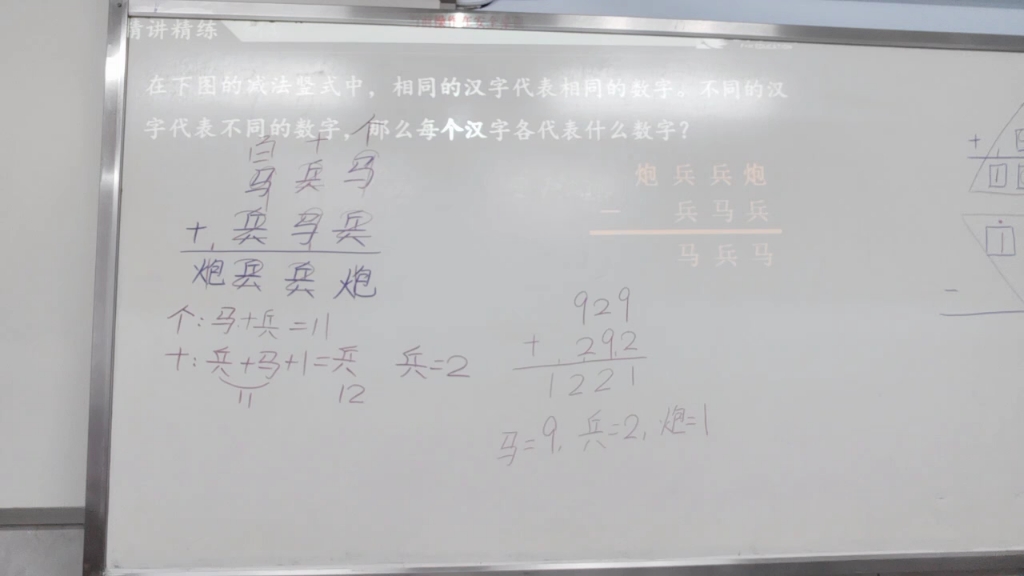 精讲精练
在下图的减法竖式中，相同的汉字代表相同的数字。不同的汉
字代表不同的数字，那么每个汉字各代表什么数字？
百 十 个
马 兵 马
+ 兵 马 兵
炮 兵 兵 炮
个：马+兵=11
十：兵+马+1=兵 兵=2
11 12
炮 兵 兵 炮
- 兵 马 兵
马 兵 马
929
+ 292
1221
马=9, 兵=2, 炮=1
+
1
1
-